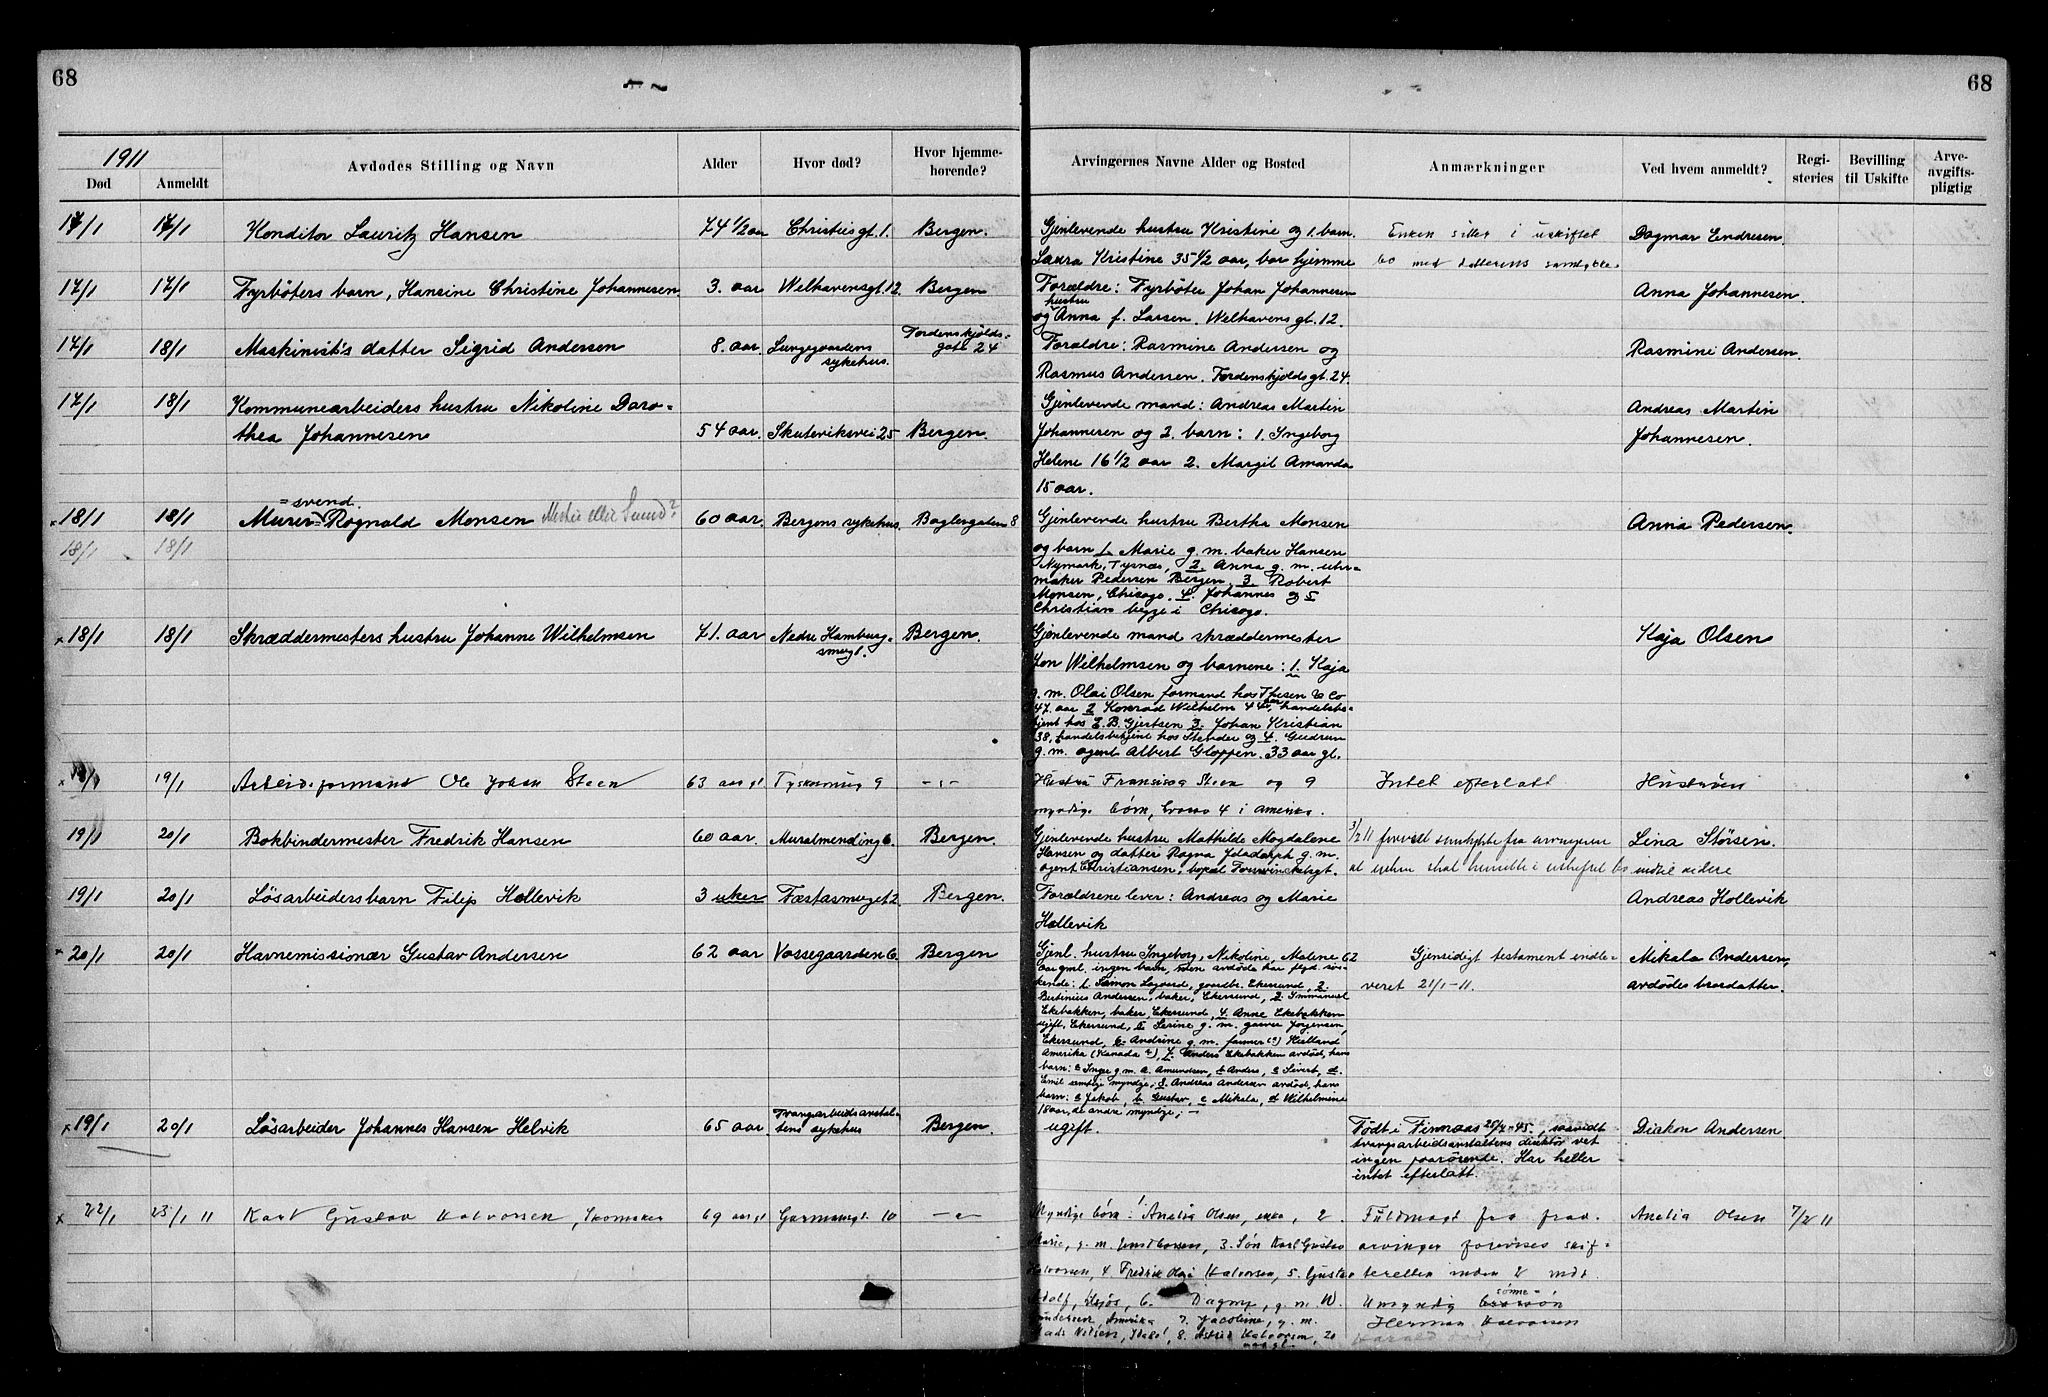 68
68
1911
Død
Anmeldt
Avdødes Stilling og Navn
Alder
Hvor død?
Hvor hjemme-
hørende?
Arvingernes Navne Alder og Bosted
Anmærkninger
Ved hvem anmeldt?
Regi-
steries
Bevilling
til Uskifte
Arve-
avgifts-
pligtig
17/1 17/1 Konditor Lauritz Hansen 74 1/2 aar Christiesgt. 1. Bergen. Gjenlevende hustru Kristine og 1. barn. Enken sitter i uskiftet Dagmar Endresen.
Laura Kristine 35 1/2 aar, bor hjemme bo med datterens samtykke.
17/1 17/1 Fyrbøters barn, Hansine Christine Johannesen. 3. aar Welhavensgt. 12. Bergen Forældre: Fyrbøter Johan Johannesen Anna Johannesen.
hustru
og Anna f. Larsen. Welhavensgt. 12.
17/1 18/1 Maskinist's datter Sigrid Andersen 8. aar Lungegaardens
sykehus.
Tordenskjolds-
gate 24
Forældre: Rasmine Andersen og Rasmine Andersen.
Rasmus Andersen. Tordenskjoldsgt. 24.
17/1 18/1 Kommunearbeiders hustru Nikoline Doro- Gjenlevende mand: Andreas Martin Andreas Martin
thea Johannesen 54 aar. Skuteviksvei 25 Bergen. Johannesen og 2. barn: 1. Ingeborg Johannesen.
Helene 16 1/2 aar 2. Margit Amanda
15 aar.
= svend.
18/1 18/1 Murer Rognald Monsen Mester eller Svend? 60 aar. Bergens sykehus. Baglergaten 8 Gjenlevende hustru Bertha Monsen Anna Pedersen.
18/1 18/1 og barn 1. Marie g. m. baker Hansen
Nymark, Tysnæs, 2. Anna g. m. uhr-
maker Pedersen Bergen, 3. Robert
Monsen, Chicago. 4. Johannes og 5
Christian begge i Chicago.
18/1 18/1 Skræddermesters hustru Johanne Wilhelmsen 71. aar Nedre Hamburg-
smugt.
Bergen. Gjenlevende mand skræddermester Kaja Olsen
Jon Wilhelmsen og barnene: 1. Kaja
g. m. Olai Olsen formand hos & Co
47. aar 2 Konrad Wilhelm 44 aar, handelsbe-
tjent hos E. B. Gjertsen 3. Johan Kristian
38, handelsbetjent hos Stender og 4. Gudrun
g. m. agent Albert Gloppen. 33 aar gl.
19/1 Arbeidsformand Ole Johan Steen 63 aar gl Tyskesmug 9 -"- Hustru Fransisca Steen og 9 Intet efterlatt Hustruen
myndige børn, hvorav 4 i Amerika.
19/1 20/1 Bokbindermester Fredrik Hansen 60 aar. Muralmending 6. Bergen. Gjenlevende hustru Mathilde Magdalene 3/2 11 samtykke fra arvingen Lina Størsen.
Hansen og datter Ragna g. m.
agent Christiansen, bopæl at enken skal i uskiftet bo indtil videre
19/1 20/1 Løsarbeiders barn Filip Hollevik 3 uker Fæstesmuget 2. Bergen. Forældrene lever: Andreas og Marie Andreas Hollevik
Hollevik
20/1 20/1 Havnemissionær Gustav Andersen 62 aar Vossegaarden 6. Bergen Gjenl. hustru Ingeborg, Nikoline, Malene 62 Gjensidigt testament indle- Mikala Andersen,
aar gml. ingen barn, men avdøde har flgd. søs- veret 21/1-11. avdødes brordatter.
kende: 1. Simon Lagaard, gaardbr. Ekersund, 2.
Bertinius Andersen, baker, Ekersund, 3. Immanuel
Ekebakken, baker, Ekersund, 4. Anne Ekebakken
ugift, Ekersund, 5. Serine g. m. garver Jørgensen,
Ekersund, 6. Andrine g. m. farmer (?) Hielland
Amerika (Kanada ?), 7. Anders Ekebakken avdød, hans
barn: a Inger g. m. A. Amundsen, b Anders, c Sivert, d.
Emil samtlige myndige, 8. Andreas Andersen avdød, hans
barn: a Jakob, b. Gustav, c Mikala, d Wilhelmine
18 aar, de andre myndige; -
19/1 20/1 Løsarbeider Johannes Hansen Helvik 65 aar. Tvangsarbeidsanstal-
tens sykehus
Bergen. ugift. Født i Finnaas 20/7-45, saavidt Diakon Andersen.
tvangsarbeidsanstaltens direktør vet
ingen paarørende. Har heller
intet efterlatt.
22/1 23/1 11 Karl Gustav Halvorsen, Skomaker 69 aar gl Garmannsgt. 10 -"- Myndige børn: 1 Amalia Olsen, enke, 2. Fuldmagt fra fra. Amalia Olsen 7/2 11
Marie, g. m. 3. Søn Karl Gustav arvinger forevises skif-
Halvorsen, 4 Fredrik Olai Halvorsen, 5. Gustav teretten inden 2 mdr.
Adolf, tilsjøs, 6. Dagny, g. m. W. Umyndig sønne-
søn
Andersen, Amerika 7. Jacoline, g. m. Herman Halvorsen
Mads Nilsen, 8. Astrid Halvorsen, 20
aar gl.